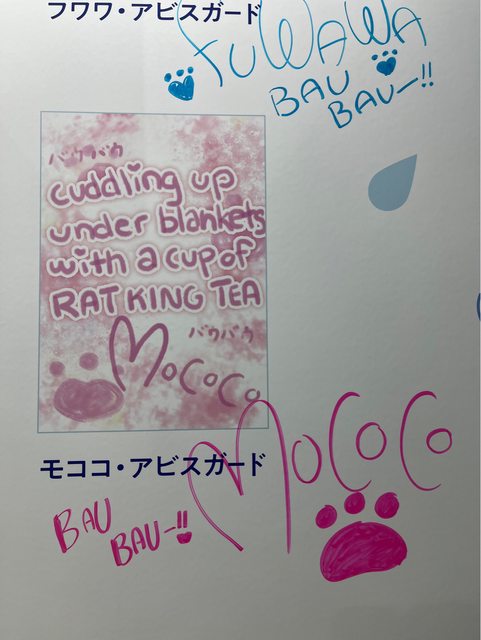 フワワ・アビスガード
FUWAWA
BAU
BAUー!!
バウバウ
cuddling up
under blankets
with a cup of
RAT KING TEA
バウバウ
MOCOCO
モココ・アビスガード
MOCOCO
BAU
BAUー!!